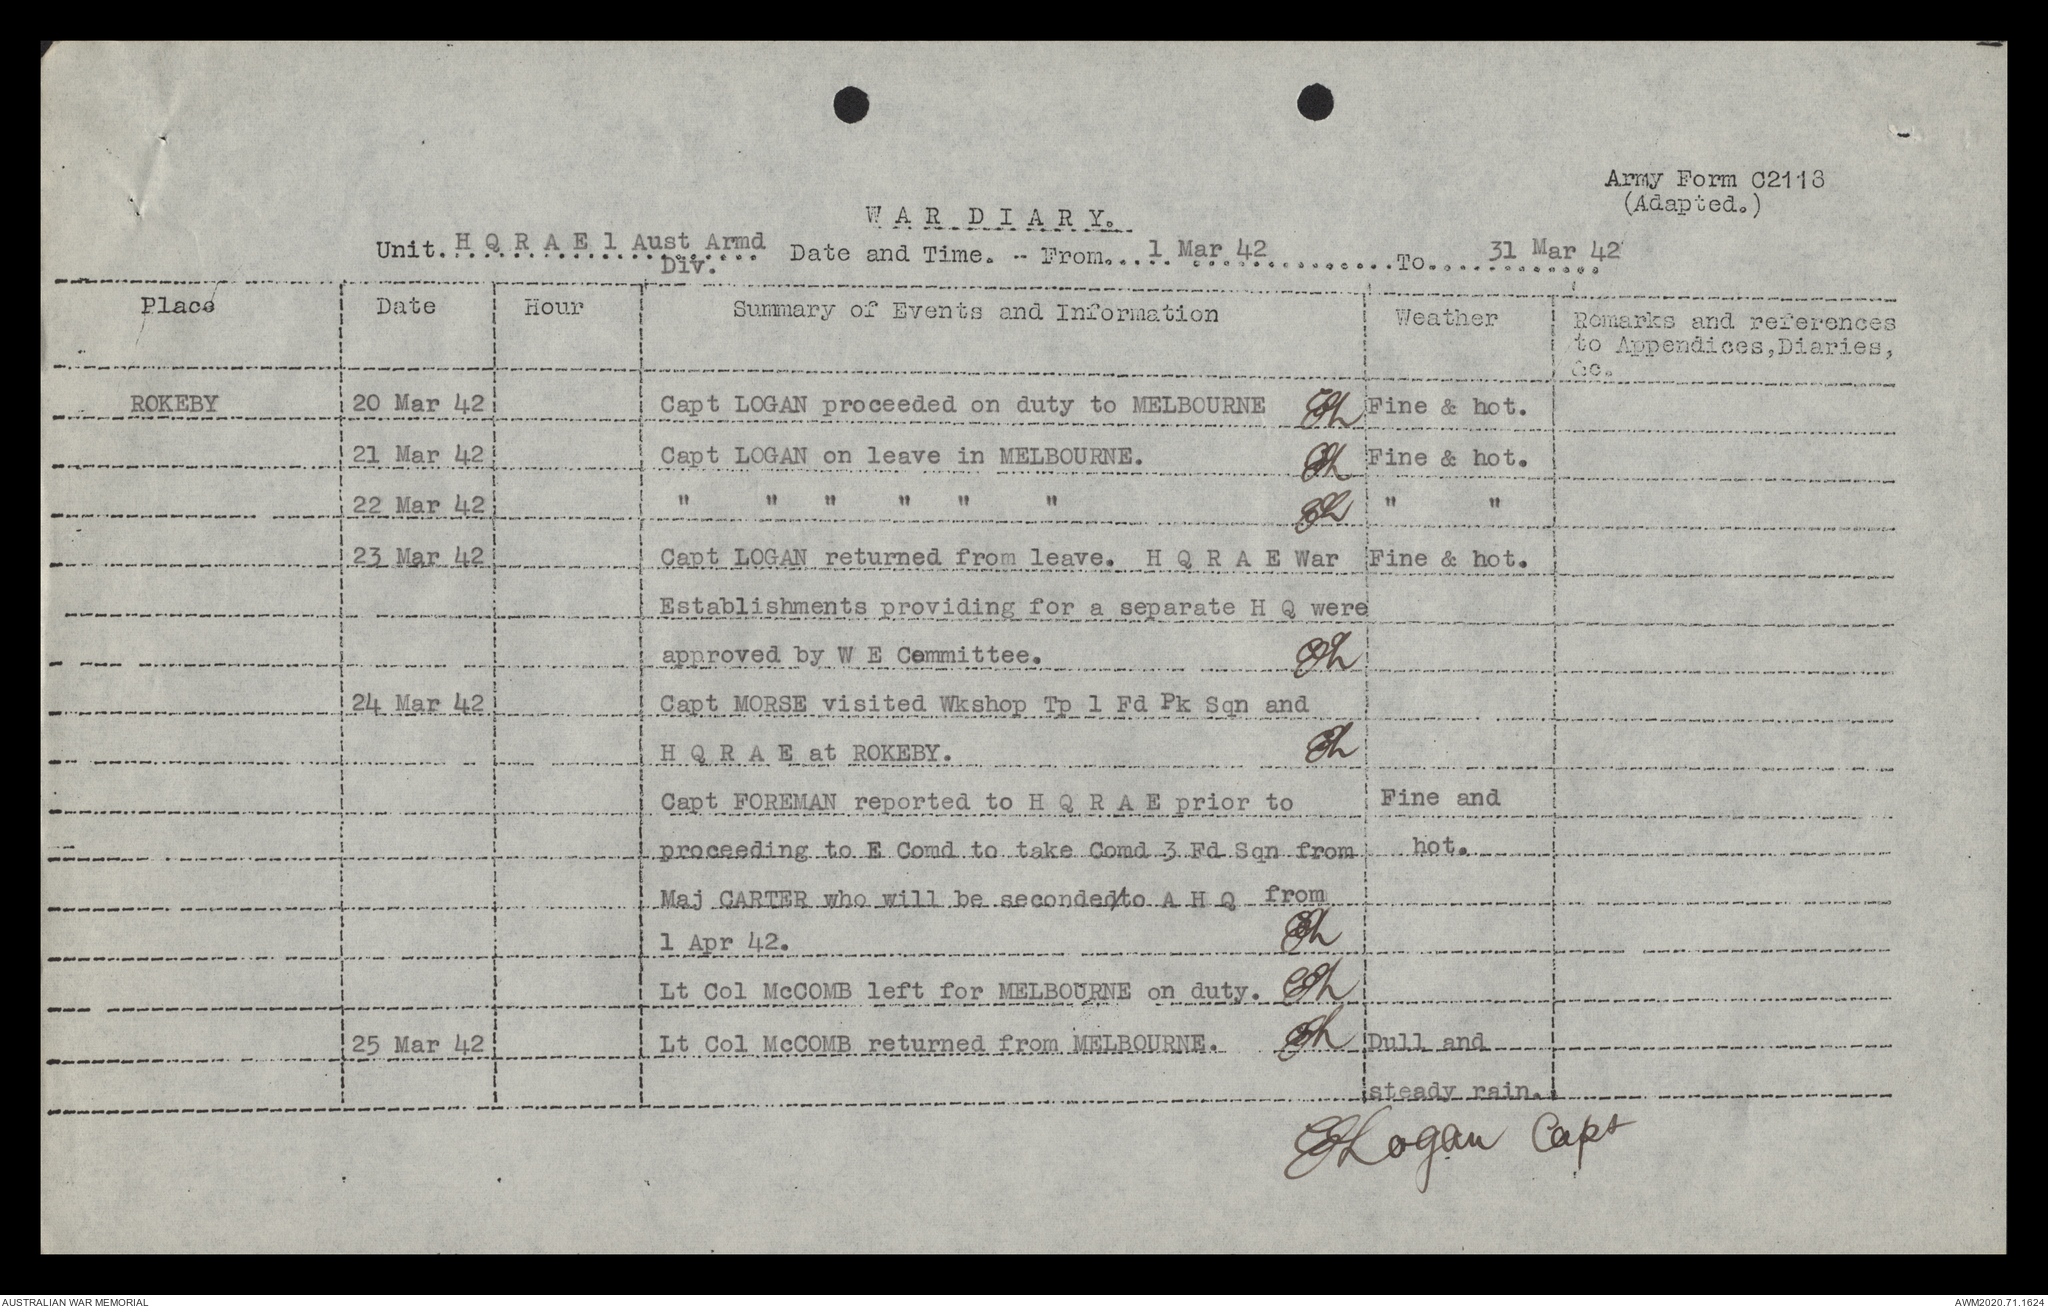 Army Form C2118
(Adapted.)
WAR DIARY.
Unit. H Q R A E 1 Aust Armd Div. Date and Time. - From. 1 Mar 42 To. 31 Mar 42
Place Date Hour Summary of Events and Information Weather Remarks and references
to Appendices,Diaries,
&c.
ROKEBY 20 Mar 42 Capt LOGAN proceeded on duty to MELBOURNE Fine & hot.
21 Mar 42 Capt LOGAN on leave in MELBOURNE. Fine & hot.
22 Mar 42 " " " " " " " "
23 Mar 42 Capt LOGAN returned from leave. H Q R A E War Fine & hot.
Establishments providing for a separate H Q were
approved by W E Committee.
24 Mar 42 Capt MORSE visited Wkshop Tp 1 Fd Pk Sqn and
H Q R A E at ROKEBY.
Capt FOREMAN reported to H Q R A E prior to Fine and
proceeding to E Comd to take Comd 3 Fd Sqn from hot.
Maj CARTER who will be seconded/to A H Q from
1 Apr 42.
Lt Col McCOMB left for MELBOURNE on duty.
25 Mar 42 Lt Col McCOMB returned from MELBOURNE. Dull and
steady rain.
Logan Capt
AUSTRALIAN WAR MEMORIAL AWM2020.71.1624